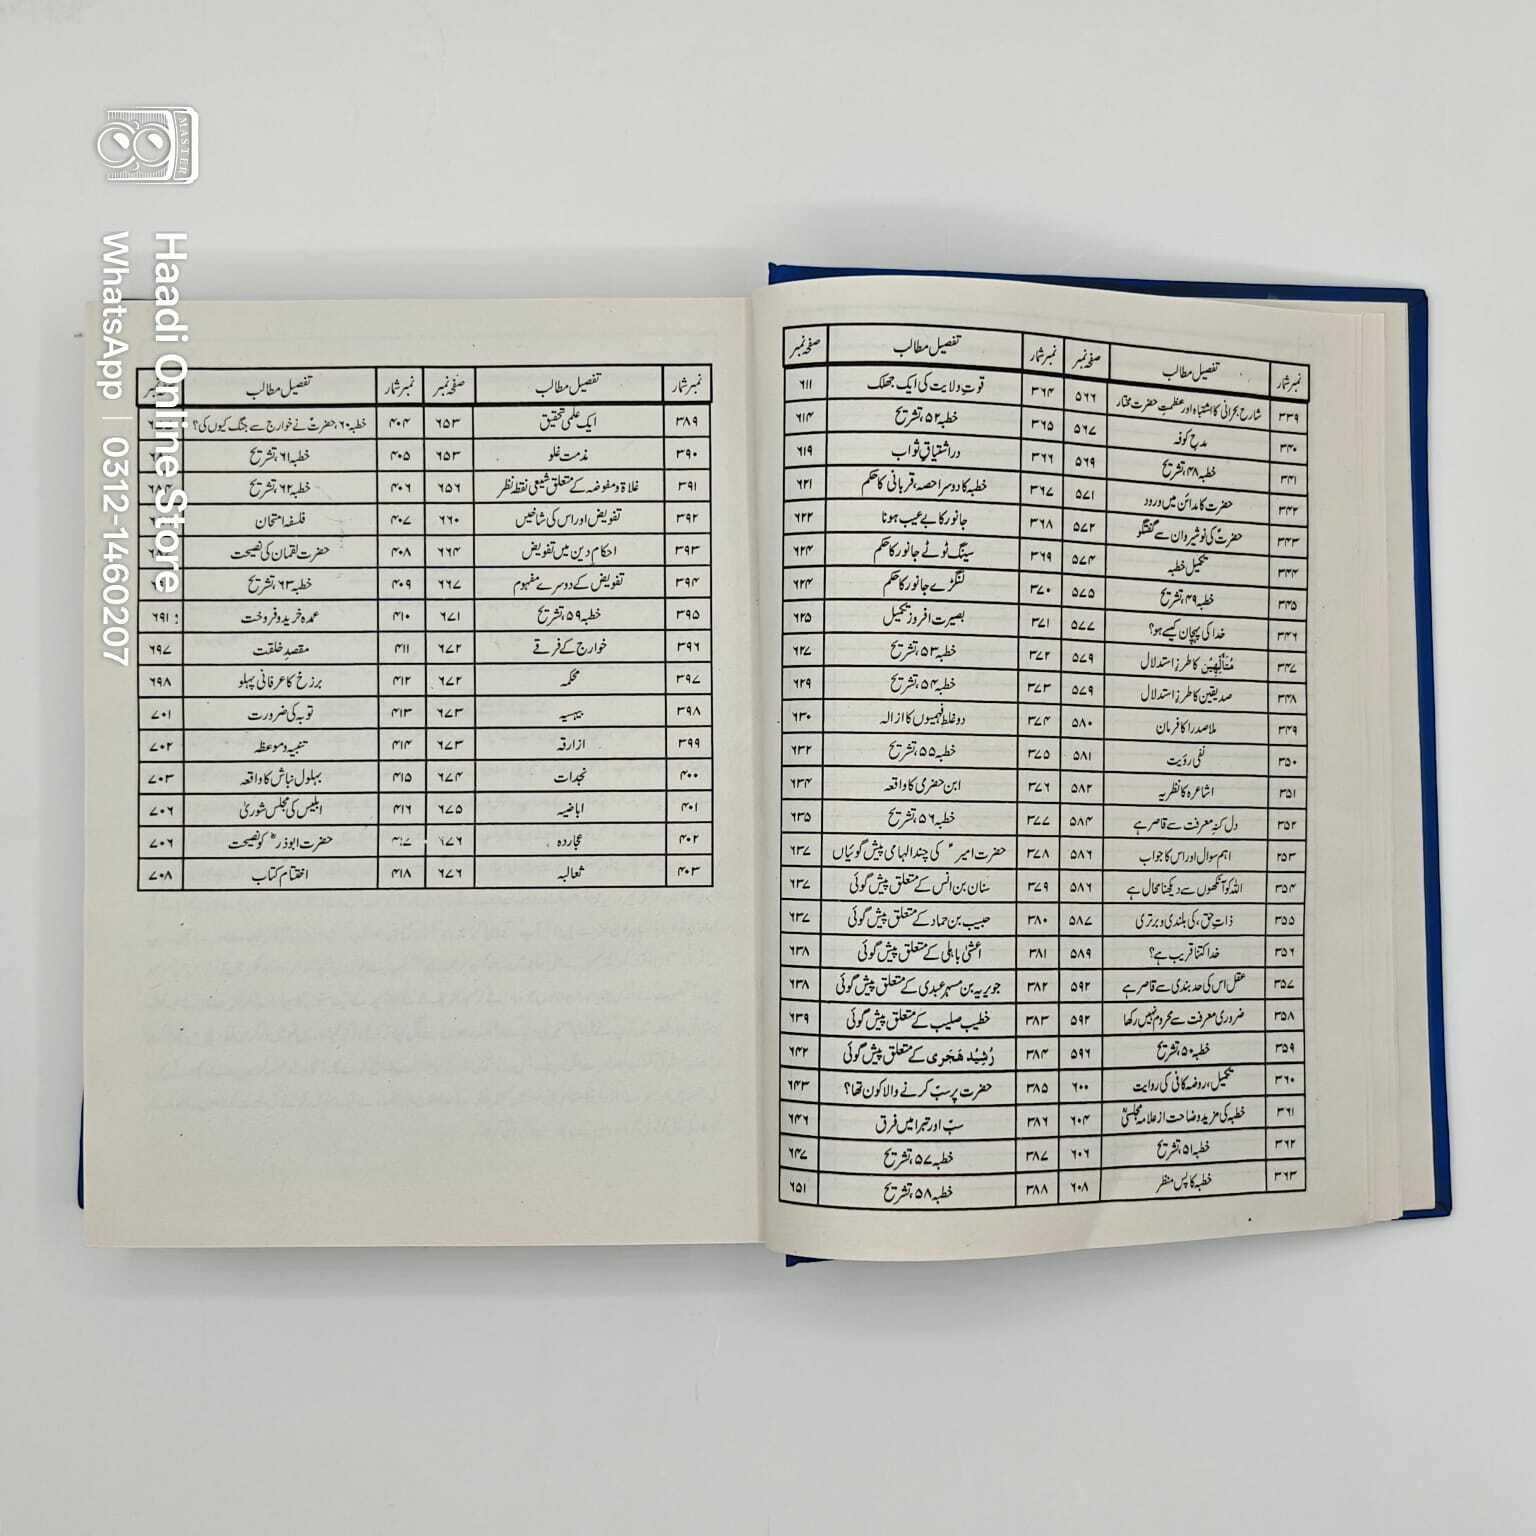 MASTER
Haadi Online Store
WhatsApp | 0312-14602077
نمبر شمار تفصیل مطالب صفحہ نمبر
۳۳۹ شارح بحرانی کا اشتباہ اور عظمتِ حضرت مختار ۵۶۶
۳۴۰ مدحِ کوفہ ۵۶۷
۳۴۱ خطبہ ۴۸، تشریح ۵۶۹
۳۴۲ حضرت کا مدائن میں ورود ۵۷۱
۳۴۳ حضرتؑ کی نوشیروان سے گفتگو ۵۷۲
۳۴۴ تکمیل خطبہ ۵۷۴
۳۴۵ خطبہ ۴۹، تشریح ۵۷۵
۳۴۶ خدا کی پہچان کیسے ہو؟ ۵۷۷
۳۴۷ مُتَأَلِّهِيْن کا طرزِ استدلال ۵۷۹
۳۴۸ صدیقین کا طرزِ استدلال ۵۷۹
۳۴۹ ملا صدرا کا فرمان ۵۸۰
۳۵۰ نفی رؤیت ۵۸۱
۳۵۱ اشاعرہ کا نظریہ ۵۸۲
۳۵۲ دل کنہِ معرفت سے قاصر ہے ۵۸۴
۲۵۳ اہم سوال اور اس کا جواب ۵۸۶
۳۵۴ اللہ کو آنکھوں سے دیکھنا محال ہے ۵۸۶
۳۵۵ ذاتِ حق، کی بلندی و برتری ۵۸۷
۳۵۶ خدا کتنا قریب ہے؟ ۵۸۹
۳۵۷ عقل اس کی حد بندی سے قاصر ہے ۵۹۲
۳۵۸ ضروری معرفت سے محروم نہیں رکھا ۵۹۲
۳۵۹ خطبہ ۵۰، تشریح ۵۹۶
۳۶۰ تکمیل، روضہ کافی کی روایت ۶۰۰
۳۶۱ خطبہ کی مزید وضاحت از علامہ مجلسیؒ ۶۰۴
۳۶۲ خطبہ ۵۱، تشریح ۶۰۶
۳۶۳ خطبہ کا پس منظر ۶۰۸
نمبر شمار تفصیل مطالب صفحہ نمبر
۳۶۴ قوتِ ولایت کی ایک جھلک ۶۱۱
۳۶۵ خطبہ ۵۲، تشریح ۶۱۴
۳۶۶ در اشتیاقِ ثواب ۶۱۹
۳۶۷ خطبہ کا دوسرا حصہ، قربانی کا حکم ۶۲۱
۳۶۸ جانور کا بے عیب ہونا ۶۲۲
۳۶۹ سینگ ٹوٹے جانور کا حکم ۶۲۴
۳۷۰ لنگڑے جانور کا حکم ۶۲۴
۳۷۱ بصیرت افروز تکمیل ۶۲۵
۳۷۲ خطبہ ۵۳، تشریح ۶۲۷
۳۷۳ خطبہ ۵۴، تشریح ۶۲۹
۳۷۴ دو غلط فہمیوں کا ازالہ ۶۳۰
۳۷۵ خطبہ ۵۵، تشریح ۶۳۲
۳۷۶ ابن حضرمی کا واقعہ ۶۳۴
۳۷۷ خطبہ ۵۶، تشریح ۶۳۵
۳۷۸ حضرت امیرؑ کی چند الہامی پیش گوئیاں ۶۳۷
۳۷۹ سنان بن انس کے متعلق پیش گوئی ۶۳۷
۳۸۰ حبیب بن حماد کے متعلق پیش گوئی ۶۳۷
۳۸۱ اعشیٰ باہلی کے متعلق پیش گوئی ۶۳۸
۳۸۲ جویریہ بن مسہر عبدی کے متعلق پیش گوئی ۶۳۸
۳۸۳ خطیب صلیب کے متعلق پیش گوئی ۶۳۹
۳۸۴ رُشَيْد هَجَرِی کے متعلق پیش گوئی ۶۴۲
۳۸۵ حضرت پر سبّ کرنے والا کون تھا؟ ۶۴۳
۳۸۶ سبّ اور تبرا میں فرق ۶۴۶
۳۸۷ خطبہ ۵۷، تشریح ۶۴۷
۳۸۸ خطبہ ۵۸، تشریح ۶۵۱
نمبر شمار تفصیل مطالب صفحہ نمبر
۳۸۹ ایک علمی تحقیق ۶۵۳
۳۹۰ مذمت غلو ۶۵۳
۳۹۱ غلاة و مفوضہ کے متعلق شیعی نقطہ نظر ۶۵۶
۳۹۲ تفویض اور اس کی شاخیں ۶۶۰
۳۹۳ احکام دین میں تفویض ۶۶۴
۳۹۴ تفویض کے دوسرے مفہوم ۶۶۷
۳۹۵ خطبہ ۵۹، تشریح ۶۷۱
۳۹۶ خوارج کے فرقے ۶۷۲
۳۹۷ محکمہ ۶۷۲
۳۹۸ بیہسیہ ۶۷۳
۳۹۹ ازارقہ ۶۷۳
۴۰۰ نجدات ۶۷۴
۴۰۱ اباضیہ ۶۷۵
۴۰۲ عجاردہ ۶۷۶
۴۰۳ ثعالبہ ۶۷۶
نمبر شمار تفصیل مطالب
۴۰۴ خطبہ ۶۰، حضرتؑ نے خوارج سے جنگ کیوں کی؟
۴۰۵ خطبہ ۶۱، تشریح
۴۰۶ خطبہ ۶۲، تشریح
۴۰۷ فلسفہ امتحان
۴۰۸ حضرت لقمان کی نصیحت
۴۰۹ خطبہ ۶۳، تشریح
۴۱۰ عمدہ خرید و فروخت ۶۹۱
۴۱۱ مقصدِ خلقت ۶۹۷
۴۱۲ برزخ کا عرفانی پہلو ۶۹۸
۴۱۳ توبہ کی ضرورت ۷۰۱
۴۱۴ تنبیہ و موعظہ ۷۰۲
۴۱۵ بہلول نباش کا واقعہ ۷۰۳
۴۱۶ ابلیس کی مجلس شوریٰ ۷۰۶
۴۱۷ حضرت ابوذرؓ کو نصیحت ۷۰۶
۴۱۸ اختتام کتاب ۷۰۸